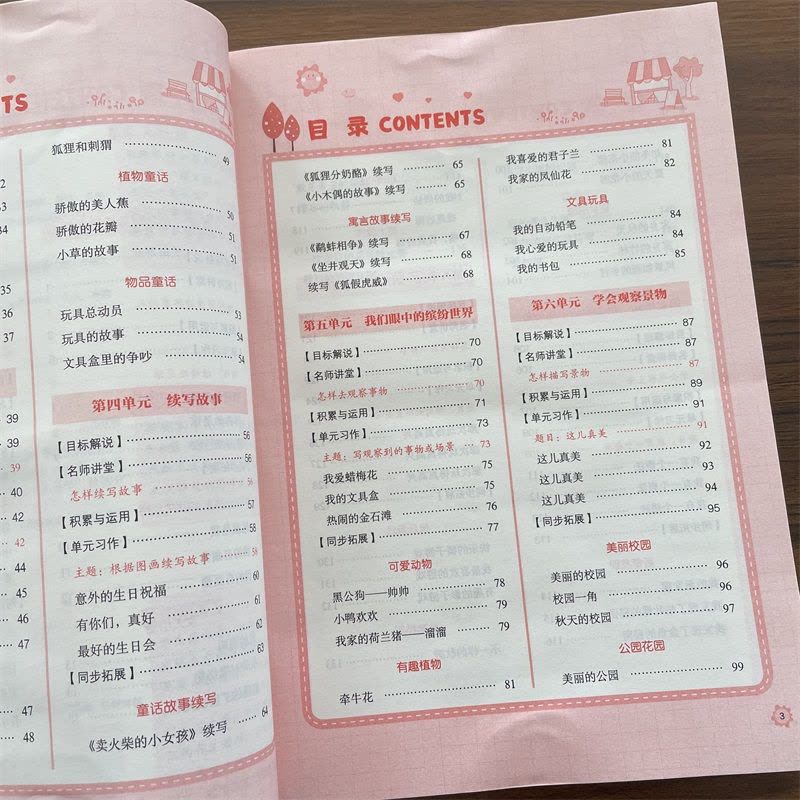 TS
2
34
35
36
37
39
39
39
40
42
44
45
46
47
47
48
狐狸和刺猬 49
植物童话
骄傲的美人蕉 50
骄傲的花瓣 51
小草的故事 51
物品童话
玩具总动员 53
玩具的故事 54
文具盒里的争吵 54
第四单元 续写故事
【目标解说】 56
【名师讲堂】 56
怎样续写故事 56
【积累与运用】 57
【单元习作】 58
主题：根据图画续写故事 58
意外的生日祝福 60
有你们，真好 61
最好的生日会 62
【同步拓展】 63
童话故事续写
《卖火柴的小女孩》续写 64
目 录 CONTENTS
《狐狸分奶酪》续写 65
《小木偶的故事》续写 65
寓言故事续写
《鹬蚌相争》续写 67
《坐井观天》续写 68
续写《狐假虎威》 68
第五单元 我们眼中的缤纷世界
【目标解说】 70
【名师讲堂】 70
怎样去观察事物 70
【积累与运用】 71
【单元习作】 73
主题：写观察到的事物或场景 73
我爱蜡梅花 75
我的文具盒 75
热闹的金石滩 76
【同步拓展】 77
可爱动物
黑公狗——帅帅 78
小鸭欢欢 79
我家的荷兰猪——溜溜 79
有趣植物
牵牛花 81
我喜爱的君子兰 81
我家的凤仙花 82
文具玩具
我的自动铅笔 84
我心爱的玩具 84
我的书包 85
第六单元 学会观察景物
【目标解说】 87
【名师讲堂】 87
怎样描写景物 87
【积累与运用】 89
【单元习作】 91
题目：这儿真美 91
这儿真美 92
这儿真美 93
这儿真美 94
【同步拓展】 95
美丽校园
美丽的校园 96
校园一角 96
秋天的校园 97
公园花园
美丽的公园 99
3